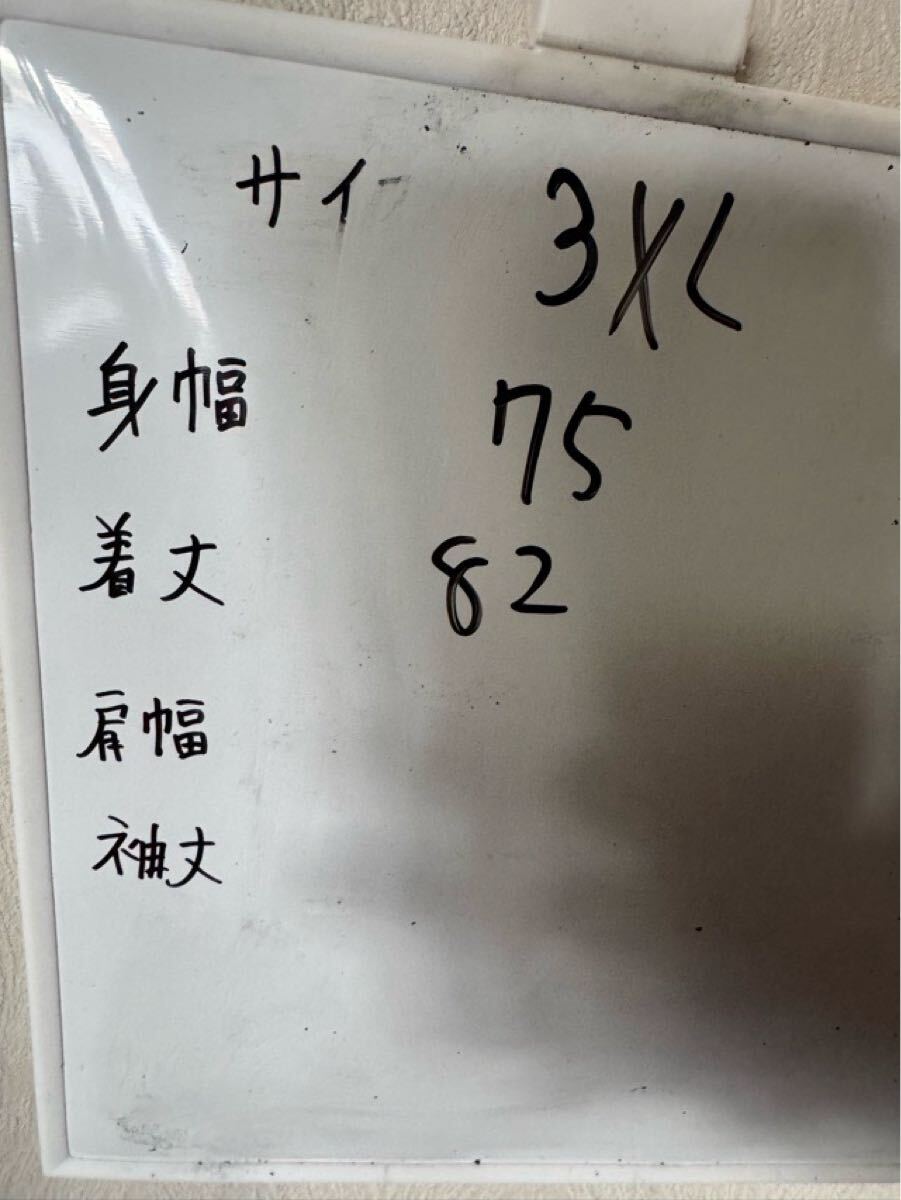 サイ 3XL
身幅 75
着丈 82
肩幅
袖丈